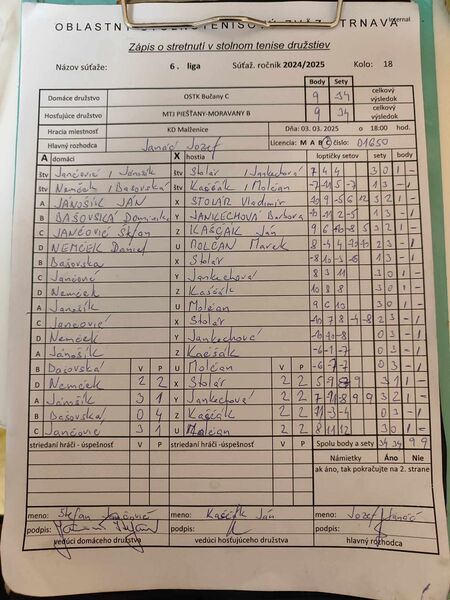 OBLASTNÝ STOLNOTENISOVÝ ZVÄZ TRNAVA
Internal
Zápis o stretnutí v stolnom tenise družstiev
Názov súťaže: 6. liga Súťaž. ročník 2024/2025 Kolo: 18
Body Sety
Domáce družstvo OSTK Bučany C 9 34 celkový výsledok
Hosťujúce družstvo MTJ PIEŠŤANY-MORAVANY B 9 34 celkový výsledok
Hracia miestnosť KD Malženice Dňa: 03. 03. 2025 o 18:00 hod.
Hlavný rozhodca Janáč Jozef Licencia: M A B C číslo: 01650
A domáci X hostia loptičky setov sety body
štv Jančovič / Jánošík štv Stolár / Jankechová 7 4 4 3 0 1 -
štv Nemček / Bašovská štv Kaščák / Molčan -7 -11 5 -7 1 3 - 1
A JÁNOŠÍK JÁN X STOLÁR Vladimír 3 2 1 -
B BAŠOVSKÁ Dominika Y JANKECHOVÁ Barbora 1 3 - 1
C JANČOVIČ Štefan Z KAŠČÁK Ján 3 1 -
D NEMČEK Daniel U MOLČAN Marek 2 3 - 1
B Bašovská X Stolár 1 3 - 1
C Jančovič Y Jankechová 8 3 11 3 0 1 -
D Nemček Z Kaščák 3 0 1 -
A Janošík U Molčan 9 6 10 3 0 1 -
C Jančovič X Stolár -10 7 8 -4 -8 2 3 - 1
D Nemček Y Jankechová 0 3 - 1
A Jánošík Z Kaščák -6 -1 -7 0 3 - 1
B Bašovská V P U Molčan V P -6 -7 -7 0 3 - 1
D Nemček 2 2 X Stolár 2 2 3 1 1 -
A Jánošík 3 1 Y Jankechová 2 2 3 2 1 -
B Bašovská 0 4 Z Kaščák 2 2 0 3 - 1
C Jančovič 3 1 U Molčan 2 2 8 11 12 3 0 1 -
striedaní hráči - úspešnosť V P striedaní hráči - úspešnosť V P Spolu body a sety 34 34 9 9
Námietky Áno Nie
ak áno, tak pokračujte na 2. strane
meno: Štefan Jančovič meno: Kaščák Ján meno: Jozef Janáč
podpis: podpis: podpis:
vedúci domáceho družstva vedúci hosťujúceho družstva hlavný rozhodca